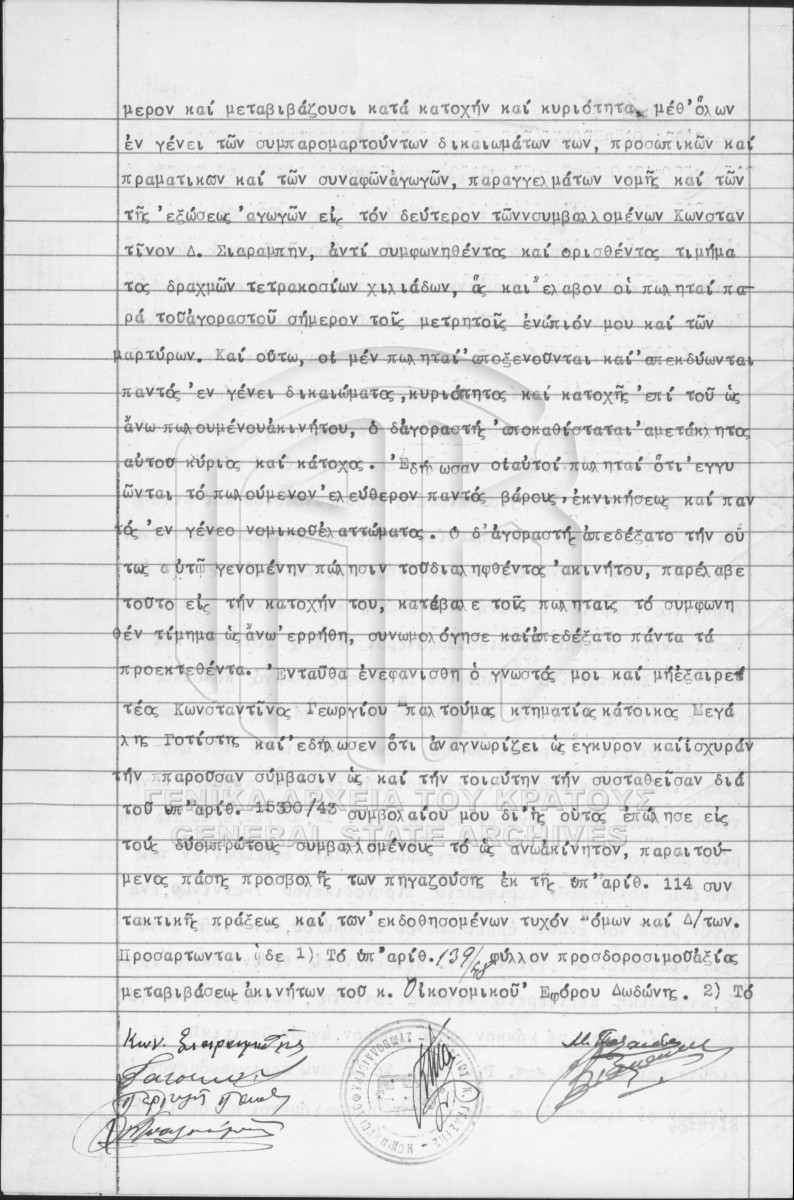 μερον καί μεταβιβάζουσι κατά κατοχήν καί κυριότητα, μέθ'ὅλων
ἐν γένει τῶν συμπαρομαρτούντων δικαιωμάτων των, προσωπικῶν καί
πραματικων καί τῶν συναφῶνἀγωγῶν, παραγγελμάτων νομῆς καί τῶν
τῆς 'εξώσεως 'αγωγῶν εἰς τόν δεύτερον τῶννσυμβαλλομένων Κωνσταν
τῖνον Δ. Σιαραμπήν, ἀντί συμφωνηθέντος καί ορισθέντος τιμήμα
τος δραχμῶν τετρακοσίων χιλιάδων, ἅς και ἔλαβον οἱ πωληταί πα-
ρά τοῦἀγοραστοῦ σήμερον τοῖς μετρητοῖς ἐνώπιόν μου καί τῶν
μαρτύρων. Καί οὕτω, οἱ μέν πωληταί'αποξενοῦνται καί'απεκδύωνται
παντός 'εν γένει δικαιώματος, κυριότητος καί κατοχῆς 'επί τοῦ ὡς
ἄνω πωλουμένουἀκινήτου, ὁ δἀγοραστής 'αποκαθίσταται'αμετάκλητος
αὐτοῦ κύριος καί κάτοχος. 'Εδήλωσαν οἱαὐτοί πωληταί ὅτι'εγγυ
ῶνται τό πωλούμενον'ελεύθερον παντός βάρους,'εκνικήσεως καί παν
τός 'εν γένεο νομικοῦἐλαττώματος. Ο δ'ἀγοραστής ἀπεδέξατο τήν οὕ
τως αὐτῷ γενομένην πώλησιν τοῦδιαληφθέντος'ακινήτου, παρέλαβε
τοῦτο εἰς τήν κατοχήν του, κατέβαλε τοῖς πωληταις τό συμφωνη
θέν τίμημα ὡς ἄνω'ερρήθη, συνωμολόγησε καίἀπεδέξατο πάντα τά
προεκτεθέντα. 'Ενταῦθα ἐνεφανισθη ὁ γνωστός μοι καί μήἐξαιρετ
τέος Κωνσταντῖνος Γεωργίου Παλτούμας κτηματίας κάτοικος Μεγά
λης Γοτίστης καί'εδήλωσεν ὅτι ἀναγνωρίζει ὡς εγκυρον καίἰσχυράν
τήν ππαροῦσαν σύμβασιν ὡς καί τήν τοιαύτην τήν συσταθεῖσαν διά
τοῦ ὑπ'ἀρίθ. 15300/43 συμβολαίου μου δι'ἧς οὗτος ἐπώλησε εἰς
τούς δύοἐμπρώτους συμβαλλομένους τό ὡς ανωἀκίνητον, παραιτού-
μενος πάσης προσβολῆς των πηγαζούσης ἐκ τῆς ὑπ'ἀρίθ. 114 συν
τακτικῆς πράξεως καί τῶν'εκδοθησομένων τυχόν Νόμων καί Δ/των.
Προσαρτῶνται ὧδε 1) Τό ὑπ'ἀρίθ. 139/48 φύλλον προσδοροσιμοῦἀξίας
μεταβιβάσεως ἀκινήτων τοῦ κ. Οἰκονομικοῦ Εφόρου Δωδώνης. 2) Τό
ΓΕΝΙΚΑ ΑΡΧΕΙΑ ΤΟΥ ΚΡΑΤΟΥΣ
GENERAL STATE ARCHIVES
Κων. Σιαραμπής